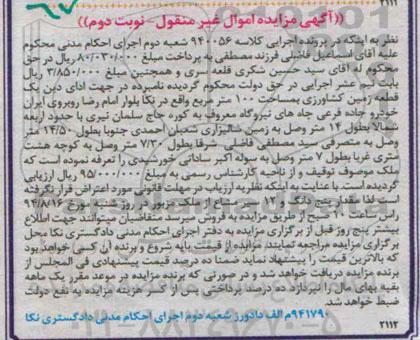 ۲۱۱۱
((آگهی مزایده اموال غیر منقول - نوبت دوم))
نظر به اینکه در پرونده اجرایی کلاسه ۹۴۰۰۵۶ شعبه دوم اجرای احکام مدنی محکوم
علیه آقای اسماعیل فاضلی فرزند مصطفی به پرداخت مبلغ ۸۰/۰۳۰/۰۰۰ ریال در حق
محکوم له آقای سید حسین شکری قلعه سری و همچنین مبلغ ۳/۸۵۰/۰۰۰ ریال
بابت نیم عشر اجرایی در حق دولت محکوم گردیده نامبرده در جهت ادای دین یک
قطعه زمین کشاورزی بمساحت ۱۰۰ متر مربع واقع در نکا بلوار امام رضا روبروی ایران
خودرو جاده فرعی چاه های نیروگاه معروف به کوره حاج سلمان نیری با حدود اربعه
شمالا بطول ۱۴ متر وصل به زمین شالیزاری شعبان احمدی جنوبا بطول ۱۴/۵۰ متر
وصل به متصرفی سید مصطفی فاضلی شرقا بطول ۷/۳۰ متر وصل به کوچه هشت
متری غربا بطول ۷ متر وصل به سوله اکبر ساداتی خورشیدی را تعرفه نموده است که
ملک موصوف توقیف و از ناحیه کارشناس رسمی به مبلغ ۹۵/۰۰۰/۰۰۰ ریال ارزیابی
گردیده است. با عنایت به اینکه نظریه ارزیاب در مهلت قانونی مورد اعتراض قرار نگرفته
است لذا مقدار پنج دانگ و ۱۳ از ملک مزبور در روز شنبه مورخ ۹۴/۸/۱۶
راس ساعت ۱۰ صبح از طریق مزایده به فروش میرسد متقاضیان میتوانند جهت اطلاع
بیشتر پنج روز قبل از برگزاری مزایده به دفتر اجرای احکام مدنی دادگستری نکا محل
برگزاری مزایده مراجعه نمایند. مزایده از قیمت پایه شروع و برنده آن کسی خواهد بود
که بالاترین قیمت را پیشنهاد نماید ضمنا ده درصد قیمت پیشنهادی فی المجلس از
برنده مزایده دریافت خواهد شد و در صورتی که برنده مزایده در موعد مقرر یک ماهه
بقیه بهای مال را نپردازد ده درصد پرداختی پس از کسر هزینه مزایده به نفع دولت
ضبط خواهد شد.
۹۴۱۷۹۰م الف دادورز شعبه دوم اجرای احکام مدنی دادگستری نکا
۲۱۱۲